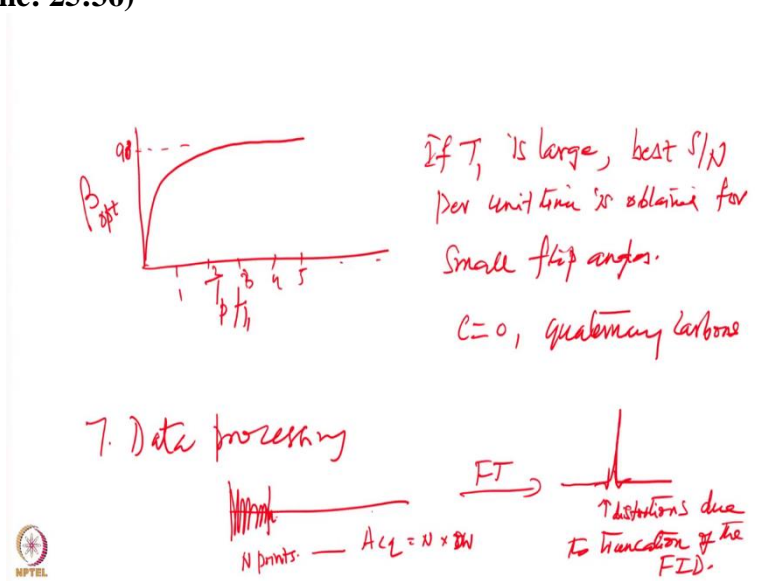 me: 25:56)
90
β opt
1 2 3 4 5
Tp/T1
If T1 is large, best S/N
per unit time is obtained for
small flip angles.
C=0, quaternary carbons
7. Data processing
FT
N points. — Acq = N x DW
↑ distortions due
to truncation of the
FID.
NPTEL